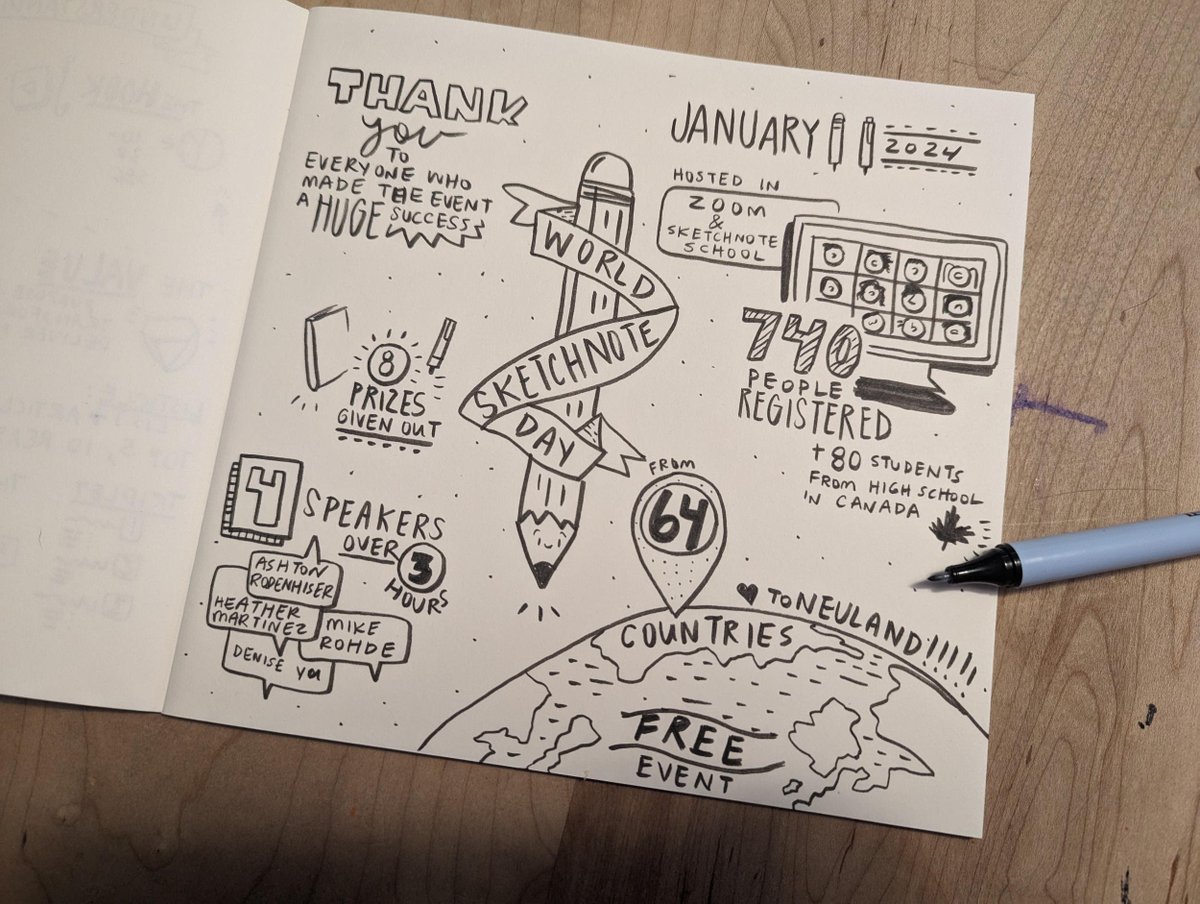 THANK
you
TO
EVERYONE WHO
MADE THE EVENT
A HUGE SUCCESS
JANUARY 11 2024
HOSTED IN
ZOOM
&
SKETCHNOTE
SCHOOL
WORLD
SKETCHNOTE
DAY
740
PEOPLE
REGISTERED
+ 80 STUDENTS
FROM HIGH SCHOOL
IN CANADA
8
PRIZES
GIVEN OUT
4 SPEAKERS
OVER 3
HOURS
ASHTON
RODENHISER
HEATHER
MARTINEZ
MIKE
ROHDE
DENISE YU
FROM
64
COUNTRIES
TO NEULAND!!!!!
FREE
EVENT